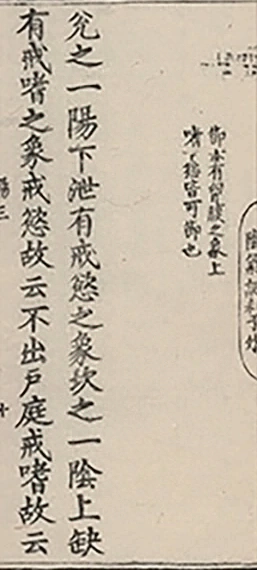 節本有腹之象上
嗜慾皆可節也
兊之一陽下泄有戒慾之象坎之一陰上缺
有戒嗜之象戒慾故云不出戶庭戒嗜故云